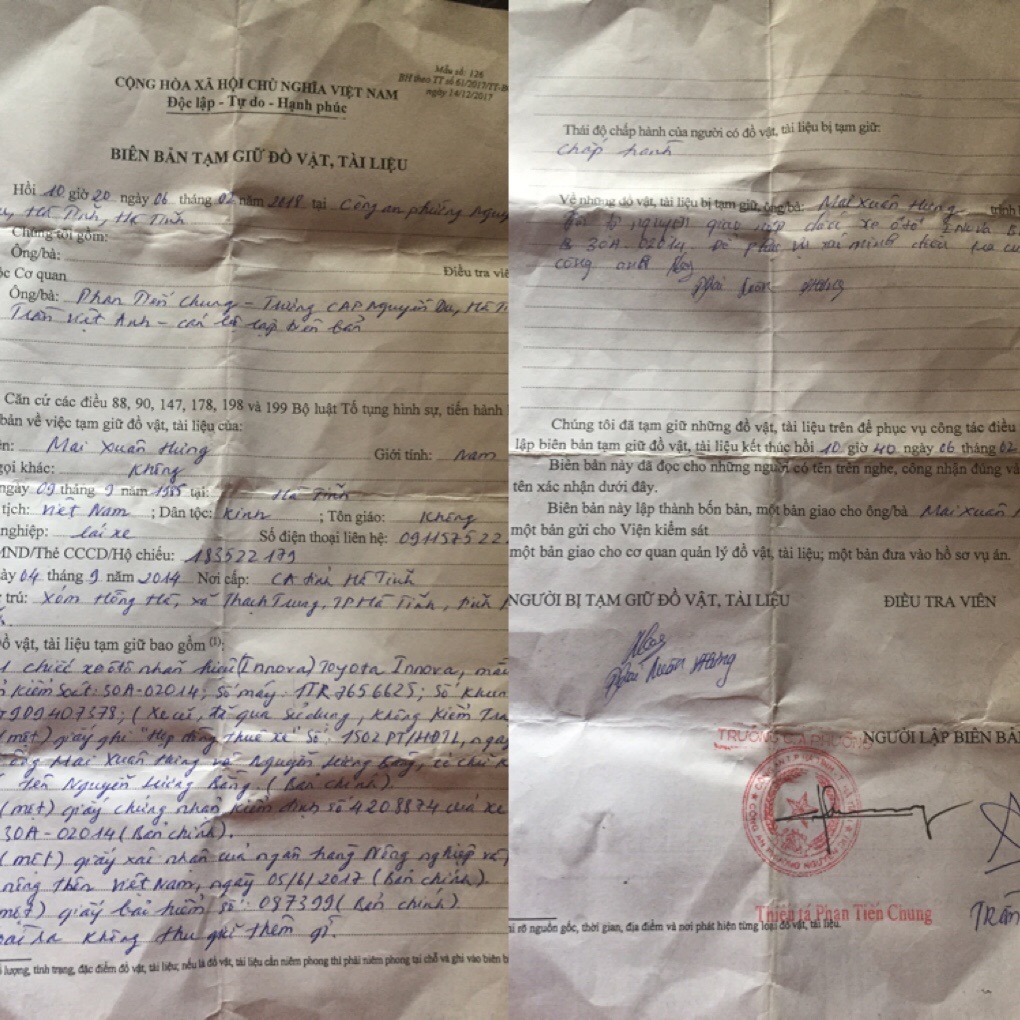 Mẫu số: 126
BH theo TT số 61/2017/TT-B
ngày 14/12/2017
CỘNG HÒA XÃ HỘI CHỦ NGHĨA VIỆT NAM
Độc lập - Tự do - Hạnh phúc
BIÊN BẢN TẠM GIỮ ĐỒ VẬT, TÀI LIỆU
Hồi 10 giờ 20 ngày 06 tháng 02 năm 2018 tại Công an phường Nguy
Hà Tĩnh, Hà Tĩnh
Chúng tôi gồm:
Ông/bà: Điều tra viê
ộc Cơ quan
Ông/bà: Phan Tiến Chung - Trưởng CAP Nguyễn Du, Hà Tĩ
Trần Việt Anh - cán bộ lập biên bản
Căn cứ các điều 88, 90, 147, 178, 198 và 199 Bộ luật Tố tụng hình sự, tiến hành
bản về việc tạm giữ đồ vật, tài liệu của:
ên: Mai Xuân Hưng Giới tính: Nam
gọi khác: Không
ngày 09 tháng 9 năm 1985 tại: Hà Tĩnh
tịch: Việt Nam ; Dân tộc: Kinh ; Tôn giáo: Không
nghiệp: lái xe Số điện thoại liên hệ: 091157522
MND/Thẻ CCCD/Hộ chiếu: 183522179
ày 04 tháng 9 năm 2014 Nơi cấp: CA tỉnh Hà Tĩnh
trú: Xóm Hồng Hà, xã Thạch Trung, TP Hà Tĩnh, tỉnh
ồ vật, tài liệu tạm giữ bao gồm (1):
1 chiếc xe ôtô nhãn hiệu (Innova) Toyota Innova, mà
kiểm soát: 30A-02014; Số máy: 1TR7656625; Số khun
909407378; (Xe cũ, đã qua sử dụng, không kiểm tra
(một) giấy ghi "Hợp đồng thuê xe" số: 1502 PT/HĐTL, ngày
ông Mai Xuân Hưng và Nguyễn Lương Bằng, có chữ k
tên Nguyễn Lương Bằng. (Bản chính).
(một) giấy chứng nhận kiểm định số 4208874 của xe
30A-02014 (Bản chính).
(một) giấy xác nhận của ngân hàng Nông nghiệp và
nông thôn Việt Nam, ngày 05/6/2017 (Bản chính).
một) giấy bảo hiểm số: 087399 (Bản chính).
oài ra không thu giữ thêm gì.
lượng, tình trạng, đặc điểm đồ vật, tài liệu; nếu là đồ vật, tài liệu cần niêm phong thì phải niêm phong tại chỗ và ghi vào biên b
Thái độ chấp hành của người có đồ vật, tài liệu bị tạm giữ:
Chấp hành
Về những đồ vật, tài liệu bị tạm giữ, ông/bà: Mai Xuân Hưng trình
Tôi tự nguyện giao nộp chiếc xe ôtô Innova B
S 30A-02014. Để phục vụ xác minh điều tra củ
công an
Mai Xuân Hưng
Chúng tôi đã tạm giữ những đồ vật, tài liệu trên để phục vụ công tác điều
lập biên bản tạm giữ đồ vật, tài liệu kết thúc hồi 10 giờ 40 ngày 06 tháng 02
Biên bản này đã đọc cho những người có tên trên nghe, công nhận đúng và
tên xác nhận dưới đây.
Biên bản này lập thành bốn bản, một bản giao cho ông/bà Mai Xuân
một bản gửi cho Viện kiểm sát
một bản giao cho cơ quan quản lý đồ vật, tài liệu; một bản đưa vào hồ sơ vụ án.
NGƯỜI BỊ TẠM GIỮ ĐỒ VẬT, TÀI LIỆU ĐIỀU TRA VIÊN
Mai Xuân Hưng
TRƯỞNG CA PHƯỜNG NGƯỜI LẬP BIÊN BẢ
Thiếu tá Phan Tiến Chung Trần
rõ nguồn gốc, thời gian, địa điểm và nơi phát hiện từng loại đồ vật, tài liệu.